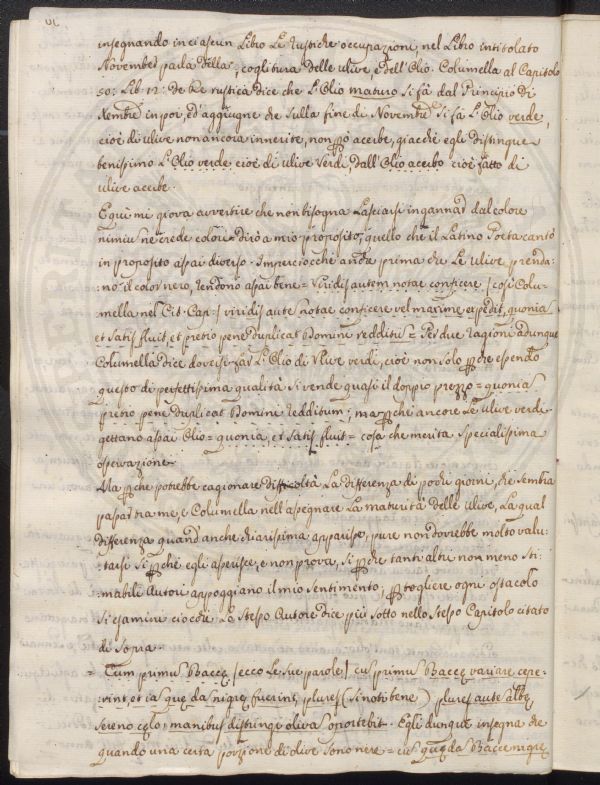 insegnando in ciascun Libro Le rustiche occupazioni, nel Libro intitolato
November parla della coglitura delle ulive, e dell'Olio. Columella al Capitolo
50: Lib: 12: de Re rustica dice che L'Olio maturo si fà dal Principio di
Xembre in poi, ed'aggiugne che sulla fine di Novembre si fa L'Olio verde,
cioè di ulive non ancora innerite, non però acerbe, giacchè egli distingue
benissimo L'Olio verde cioè di ulive verdi, dall'Olio acerbo cioè fatto di
ulive acerbe.
E quì mi giova avvertire che non bisogna Lasciarsi ingannar dal colore
nimium ne crede colori dirò a mio proposito, quello che il Latino Poeta cantò
in proposito assai diverso. Imperciocchè anche prima che Le ulive prenda:
:no il color nero, rendono assai bene = Viridis autem notae conficere [così Colu:
mella nel Cit. Cap:] viridis autem notae conficere vel maxime expedit, quoniam
et satis fluit, et pretio pene duplicat Domini redditum = Per due ragioni adunque
Columella dice doversi far L'Olio di Ulive verdi, cioè non solo perche essendo
questo di perfettissima qualità si vende quasi il doppio prezzo = quoniam
pretio pene duplicat Domini redditum; ma perchè ancora Le ulive verdi
gettano assai Olio = quoniam, et satis fluit = cosa che merita specialissima
osservazione.
Ma perche potrebbe cagionare difficoltà La differenza di pochi giorni, che sembra
passar tra me, e Columella nell'assegnare La maturità delle ulive, La qual
differenza quand'anche chiarissima apparisse, pure non dovrebbe molto valu:
:tarsi sì perchè egli asserisce, e non prova, sì perche tanti altri non meno sti:
:mabili Autori appoggiano il mio sentimento; per togliere ogni ostacolo
si esamini ciocchè Lo stesso Autore dice più sotto nello stesso Capitolo citato
di sopra.
= Cum primum Baccę [ecco Le sue parole] cum primum Baccę variare cepe:
:rint, et iam quędam nigrę fuerint, plures (si noti bene) plures autem albę
sereno cęlo, manibus distringi olivam oportebit. Egli dunque insegna che
quando una certa porzione di olive sono nere = cum quędam Baccę nigrę